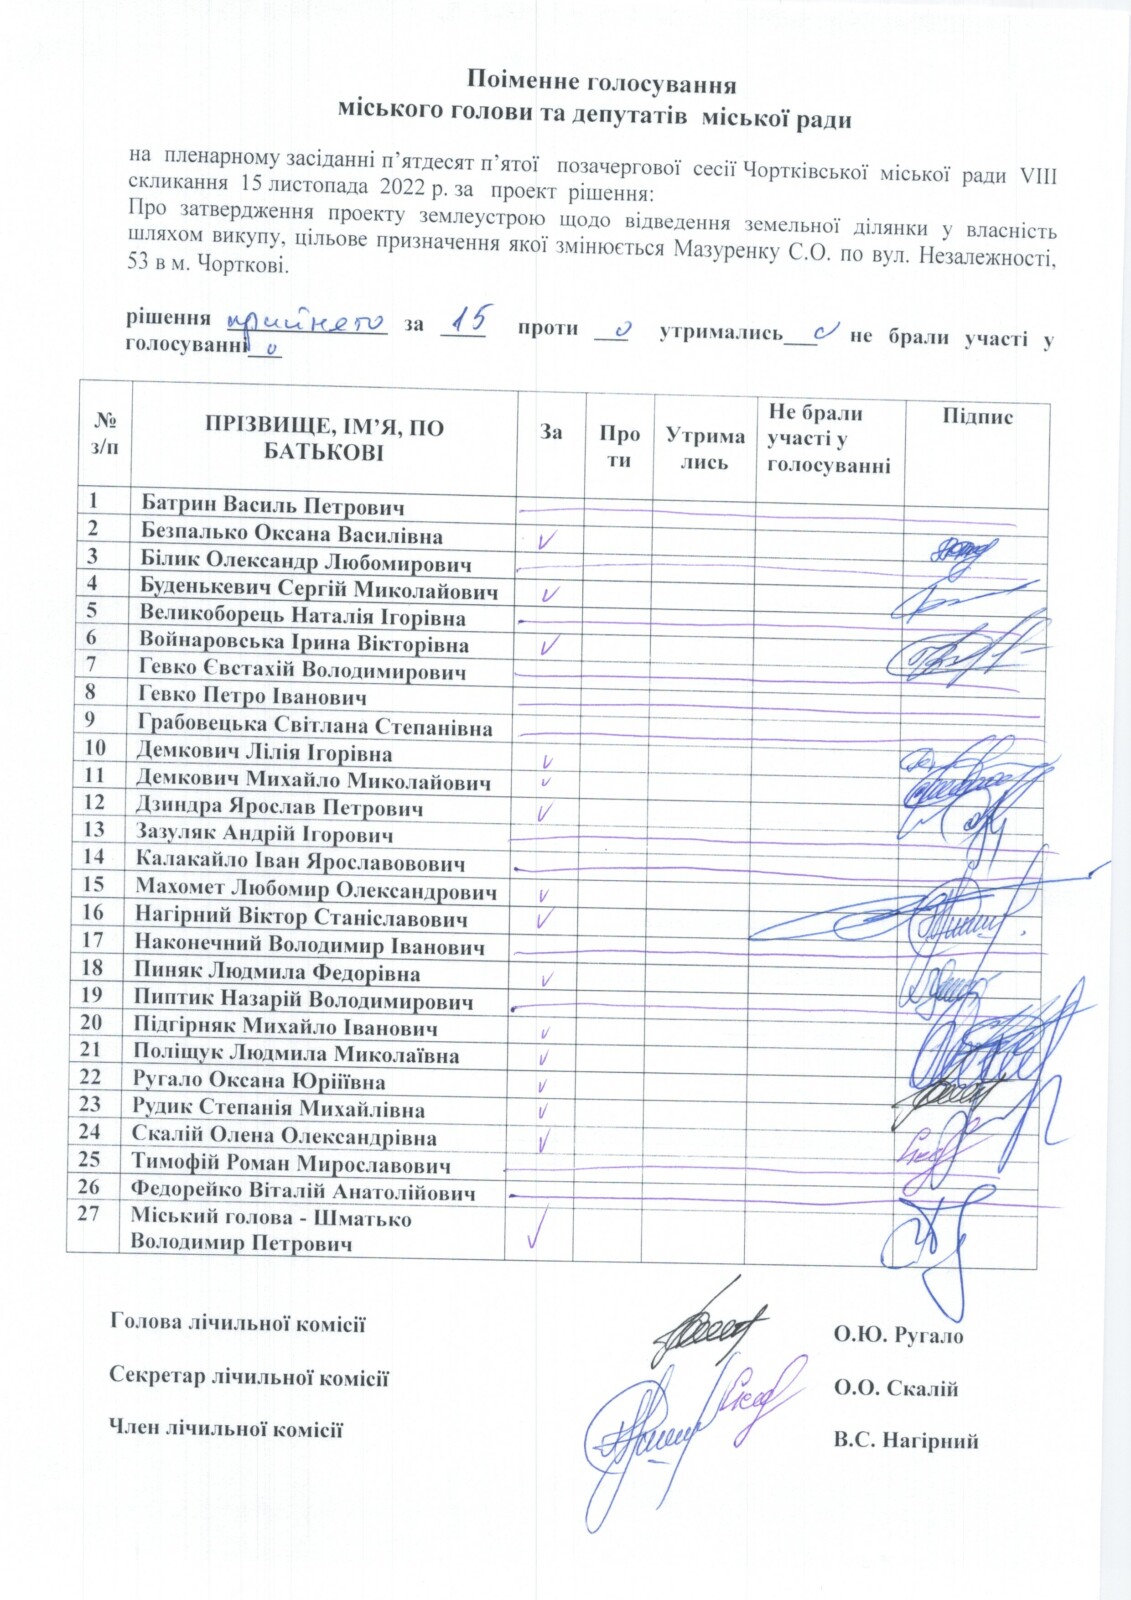 Поіменне голосування
міського голови та депутатів міської ради
на пленарному засіданні п’ятдесят п’ятої позачергової сесії Чортківської міської ради VIII
скликання 15 листопада 2022 р. за проект рішення:
Про затвердження проекту землеустрою щодо відведення земельної ділянки у власність
шляхом викупу, цільове призначення якої змінюється Мазуренку С.О. по вул. Незалежності,
53 в м. Чорткові.
рішення прийнято за 15 проти 0 утримались 0 не брали участі у
голосуванні 0
№ з/п ПРІЗВИЩЕ, ІМ’Я, ПО БАТЬКОВІ За Про ти Утрима лись Не брали участі у голосуванні Підпис
1 Батрин Василь Петрович
2 Безпалько Оксана Василівна
3 Білик Олександр Любомирович
4 Буденькевич Сергій Миколайович
5 Великоборець Наталія Ігорівна
6 Войнаровська Ірина Вікторівна
7 Гевко Євстахій Володимирович
8 Гевко Петро Іванович
9 Грабовецька Світлана Степанівна
10 Демкович Лілія Ігорівна
11 Демкович Михайло Миколайович
12 Дзиндра Ярослав Петрович
13 Зазуляк Андрій Ігорович
14 Калакайло Іван Ярославовович
15 Махомет Любомир Олександрович
16 Нагірний Віктор Станіславович
17 Наконечний Володимир Іванович
18 Пиняк Людмила Федорівна
19 Пиптик Назарій Володимирович
20 Підгірняк Михайло Іванович
21 Поліщук Людмила Миколаївна
22 Ругало Оксана Юріїївна
23 Рудик Степанія Михайлівна
24 Скалій Олена Олександрівна
25 Тимофій Роман Мирославович
26 Федорейко Віталій Анатолійович
27 Міський голова - Шматько
Володимир Петрович
Голова лічильної комісії О.Ю. Ругало
Секретар лічильної комісії О.О. Скалій
Член лічильної комісії В.С. Нагірний